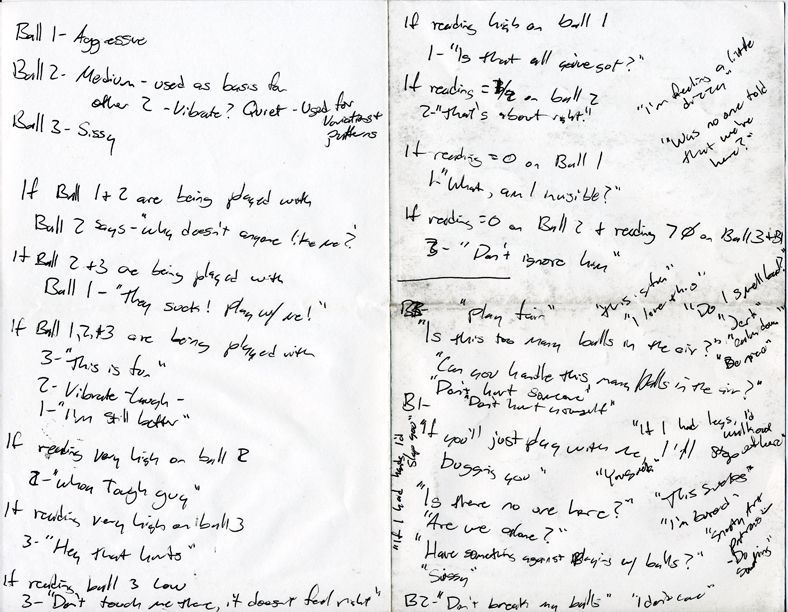 Ball 1 - Aggressive
Ball 2 - Medium - used as basis for
other 2 - Vibrate? Quiet - Used for
Variations + patterns
Ball 3 - Sissy
If Ball 1+2 are being played with
Ball 2 says - "why doesn't anyone like me?
If Ball 2+3 are being played with
Ball 1 - "They suck! Play w/ me!"
If Ball 1,2,+3 are being played with
3 - "This is fun"
2 - Vibrate - Laugh -
1 - "I'm still better"
If reading very high on ball 2
2 - "whoa Tough guy"
If reading very high on ball 3
3 - "Hey that hurts"
If reading ball 3 low
3 - "Don't touch me there, it doesn't feel right"
If reading high on ball 1
1 - "Is that all you've got?"
If reading = 1/2 on ball 2
2 - "That's about right."
"I'm feeling a little
dizzy"
"Was no one told
that we're
here?"
If reading = 0 on Ball 1
1 - "What, am I invisible?"
If reading = 0 on Ball 2 + reading >0 on Ball 3+B1
3 - "Don't ignore him"
"Play fair"
"I love this"
"Do I smell bad?"
"Jerk"
"Be nice"
"Is this too many balls in the air?"
"Can you handle this many balls in the air?"
"Don't hurt someone"
B1 - "Don't hurt yourself"
"If you'll just play with me, I'll stop
bugging you"
"If I had legs, I'd
walk
"This sucks"
"Is there no one here?"
"I'm bored"
"Are we alone?"
"Have something against playing w/ balls?"
"Sissy"
B2 - "Don't break my balls" "I don't care"